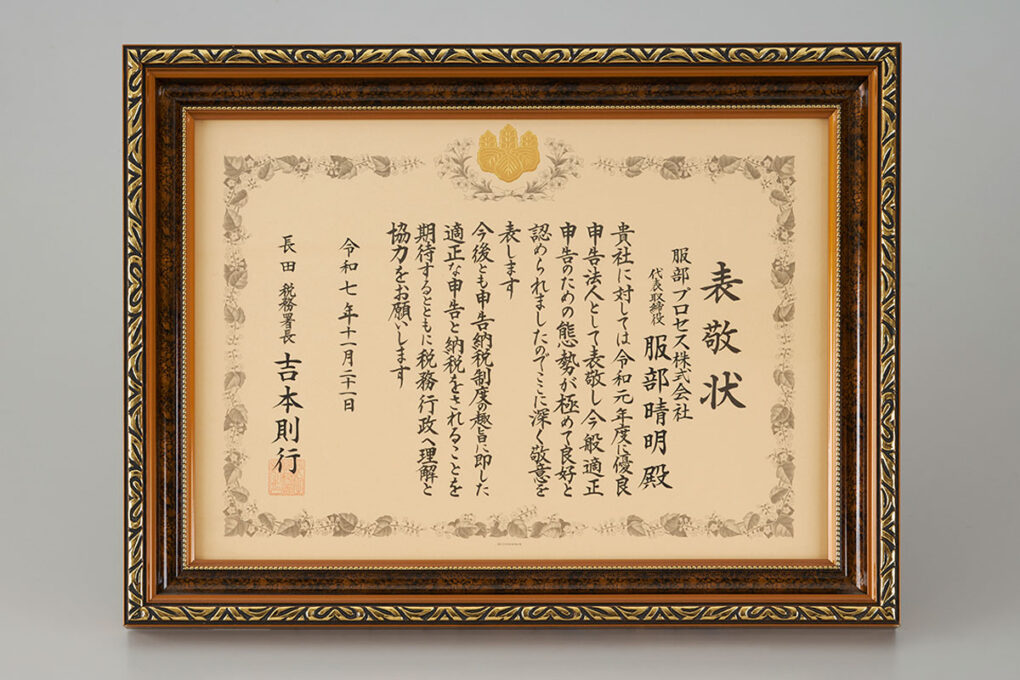 表敬状
服部プロセス株式会社
代表取締役 服部晴明殿
貴社に対しては令和元年度に優良
申告法人として表敬し今般適正
申告のための態勢が極めて良好と
認められましたのでここに深く敬意を
表します
今後とも申告納税制度の趣旨に即した
適正な申告と納税をされることを
期待するとともに税務行政へ理解と
協力をお願いします
令和七年十一月二十一日
長田税務署長 吉本則行